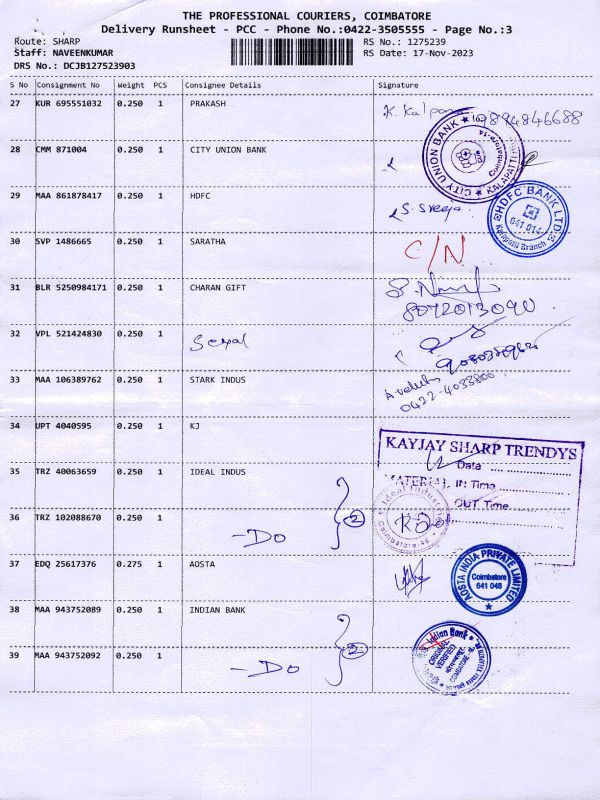 THE PROFESSIONAL COURIERS, COIMBATORE
Delivery Runsheet - PCC - Phone No.:0422-3505555 - Page No.:3
Route: SHARP RS No.: 1275239
Staff: NAVEENKUMAR RS Date: 17-Nov-2023
DRS No.: DCJB127523903
S No Consignment No Weight PCS Consignee Details Signature
27 KUR 695551032 0.250 1 PRAKASH K. Kalpana 9894846688
28 CMM 871004 0.250 1 CITY UNION BANK CITY UNION BANK KALAPATTI Coimbatore-14
29 MAA 861878417 0.250 1 HDFC S. Sreeja HDFC BANK LTD. 641 014 Kalapatti Branch
30 SVP 1486665 0.250 1 SARATHA C/N
31 BLR 5250984171 0.250 1 CHARAN GIFT 8072013090
32 VPL 521424830 0.250 1
33 MAA 106389762 0.250 1 STARK INDUS 0422-4033800
34 UPT 4040595 0.250 1 KJ
KAYJAY SHARP TRENDYS
Date
MATERIAL IN Time
OUT Time
35 TRZ 40063659 0.250 1 IDEAL INDUS Ideal Industries
36 TRZ 102088670 0.250 1 -Do 2 Coimbatore
37 EDQ 25617376 0.275 1 AOSTA AOSTA INDIA PRIVATE LIMITED Coimbatore 641 048
38 MAA 943752089 0.250 1 INDIAN BANK Indian Bank
ORIGINAL
VERIFIED
39 MAA 943752092 0.250 1 -Do 2